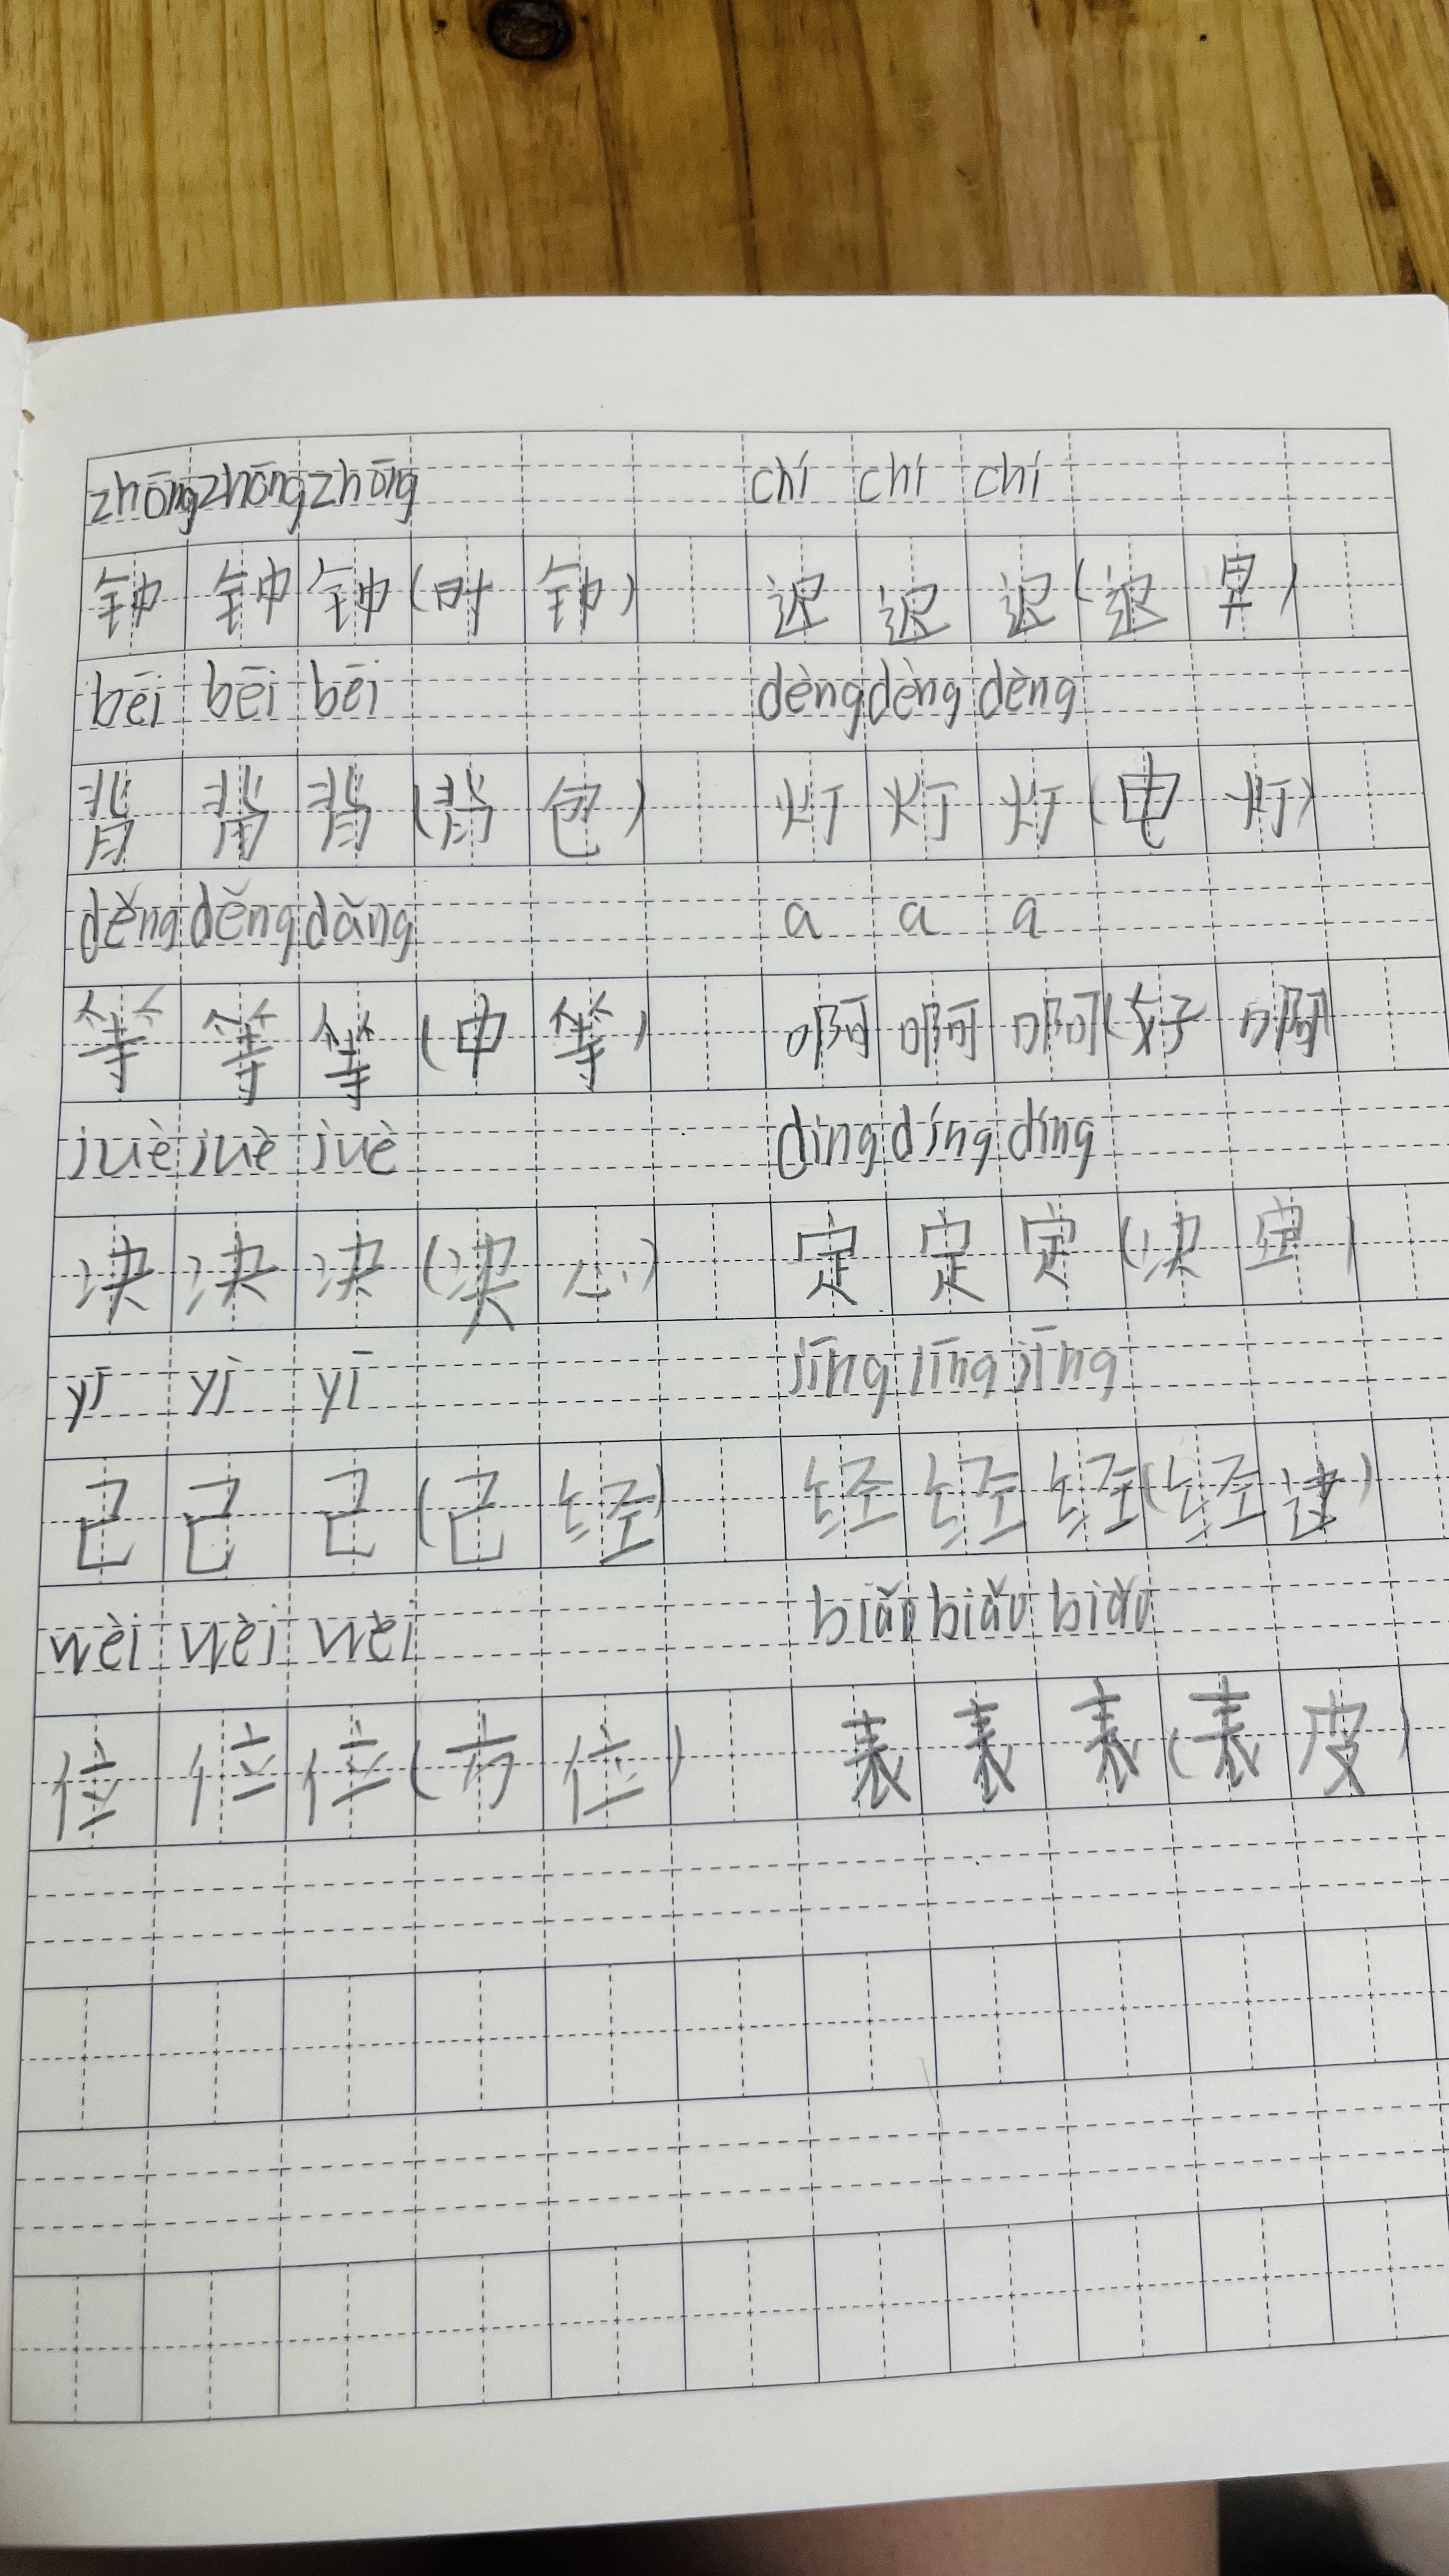 zhōng zhōng zhōng chí chí chí
钟 钟 钟 (时 钟) 迟 迟 迟 (迟 早)
bēi bēi bēi dèng dèng dèng
背 背 背 (背 包) 灯 灯 灯 (电 灯)
děng děng dǎng a a a
等 等 等 (中 等) 啊 啊 啊 (好 啊
juè juè juè dìng díng díng
决 决 决 (决 心) 定 定 定 (决 定)
yī yì yī jīng jīng jīng
已 已 已 (已 经) 经 经 经 (经 过)
wèi wèi wèi biǎo biǎo biǎo
位 位 位 (方 位) 表 表 表 (表 皮)